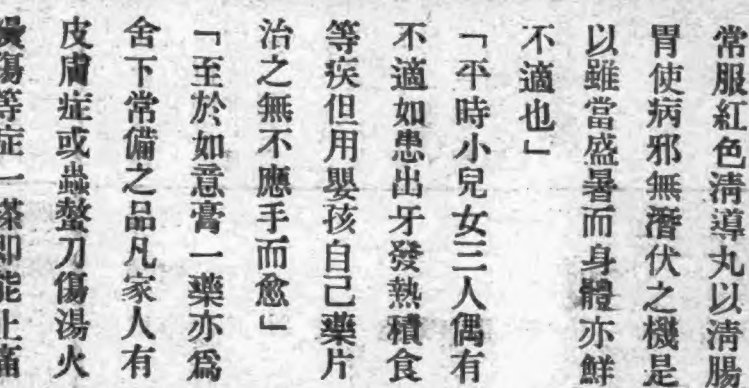 常服紅色淸導丸以淸腸
胃使病邪無潛伏之機是
以雖當盛暑而身體亦鮮
不適也」
「平時小兒女三人偶有
不適如患出牙發熱積食
等疾但用嬰孩自己藥片
治之無不應手而愈」
「至於如意膏一藥亦爲
舍下常備之品凡家人有
皮膚症或蟲螫刀傷湯火
傷等症一搽即能止痛